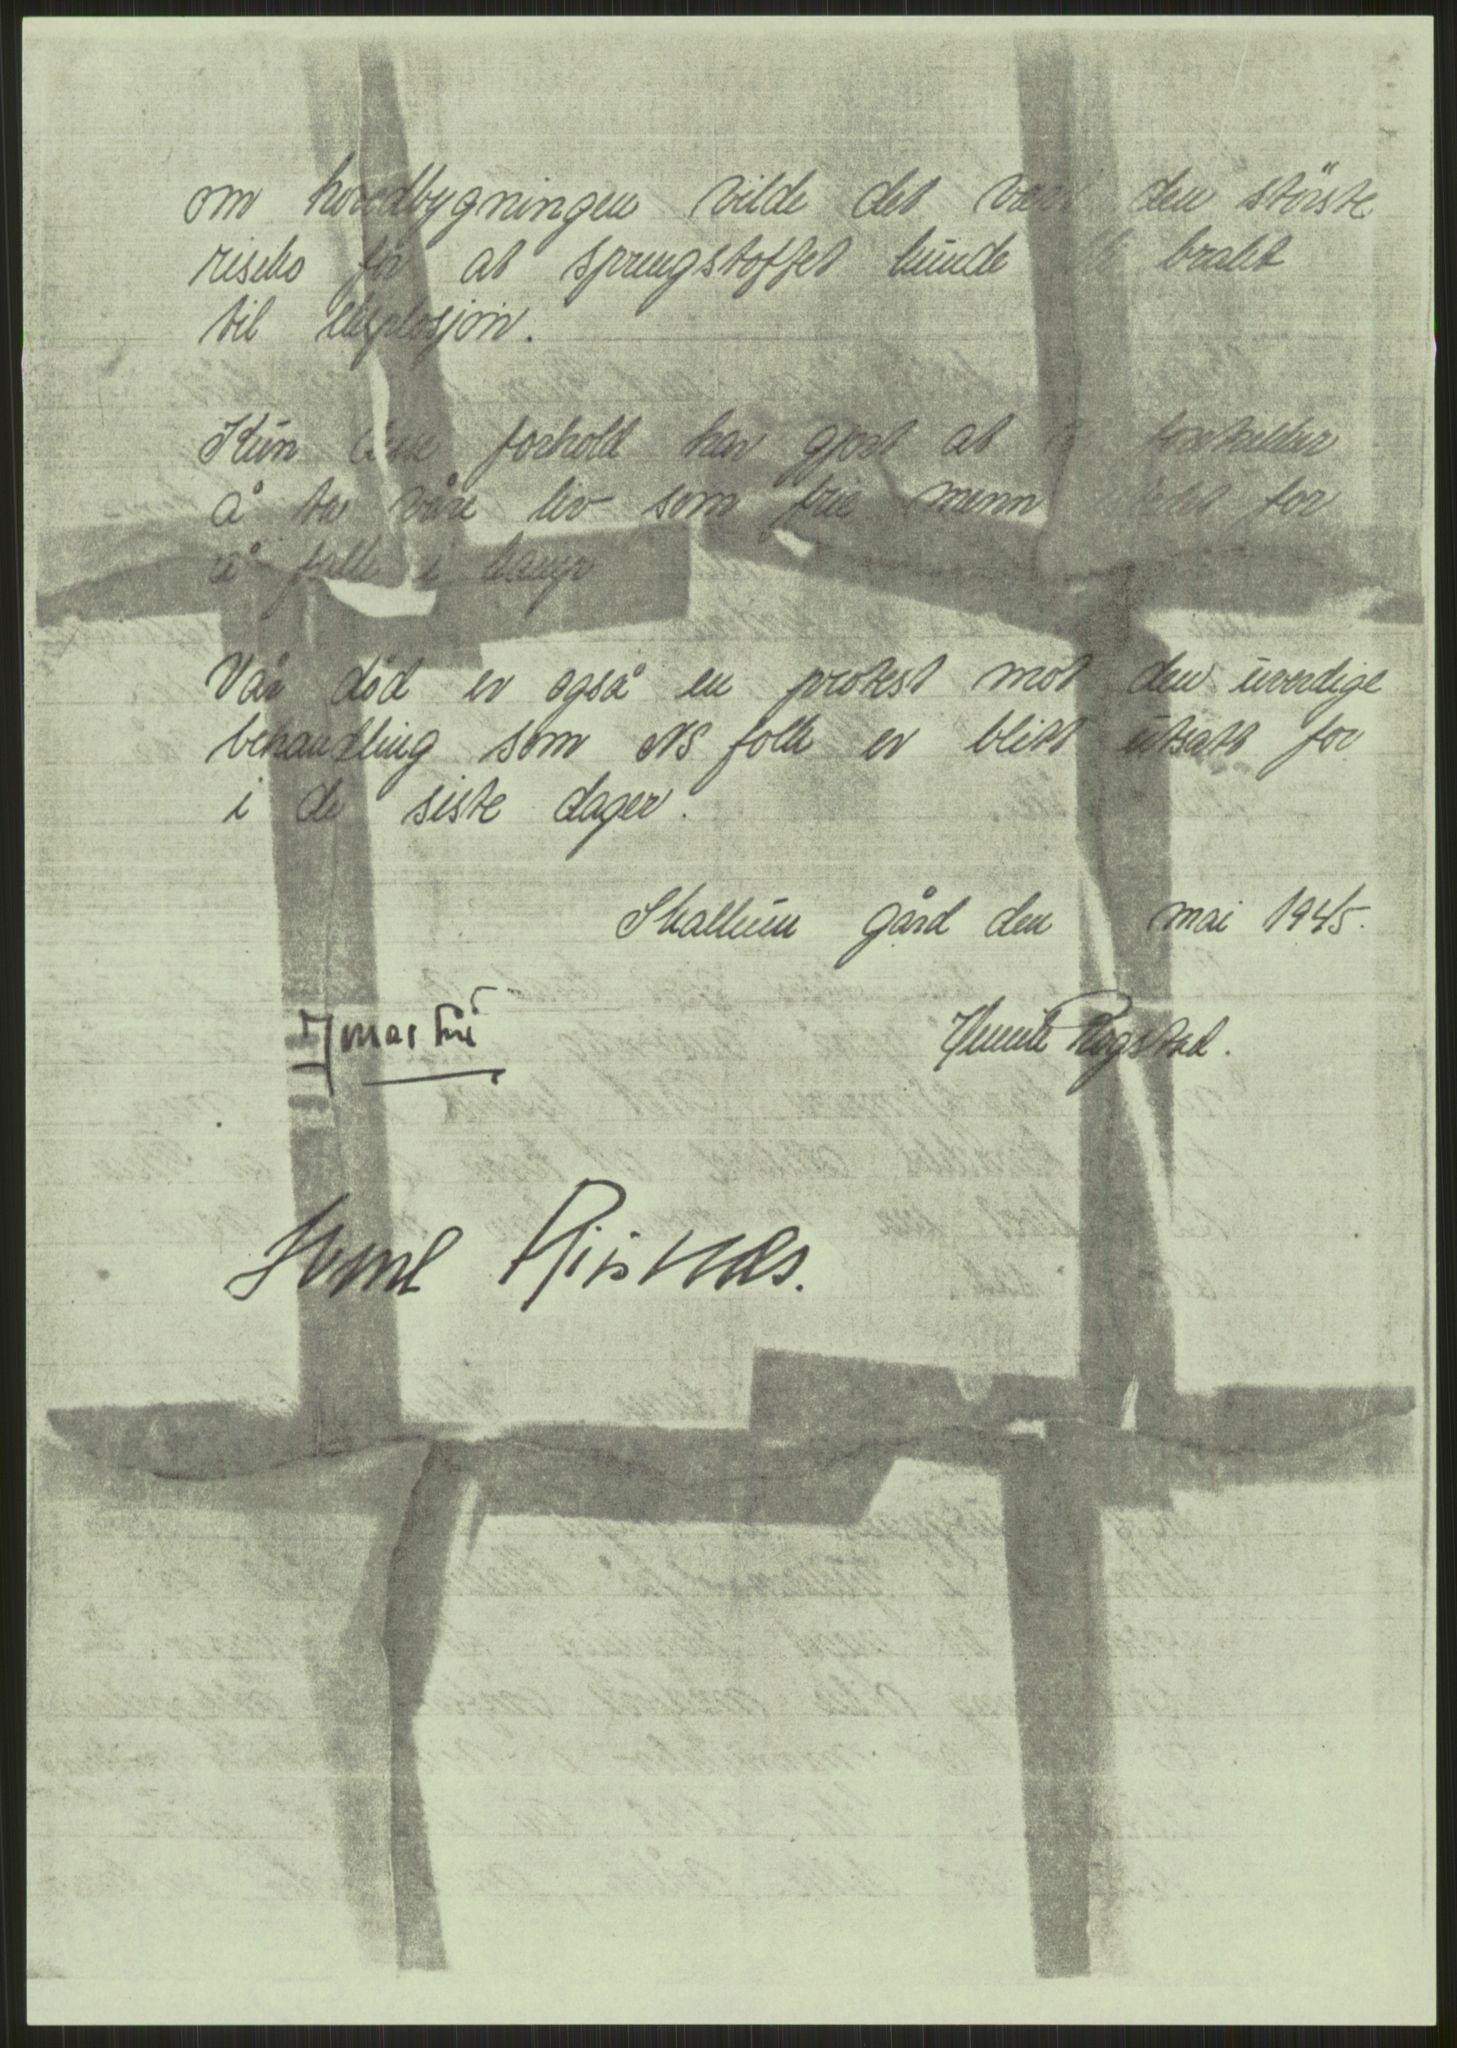 om hovedbygningen vilde det være den största
risiko for at sprengstoffet kunde bli brakt
til eksplosjon.
Kun disse forhold har gjort at vi foretrekker
å ta våre liv som frie menn for
å falle i
Vår död er også en protest mot den uverdige
behandling som NS folk er blitt utsatt for
i de siste dager.
Skallum gård den mai 1945.
Jonas Lie
Henrik Rogstad.
Sverre Riisnæs.